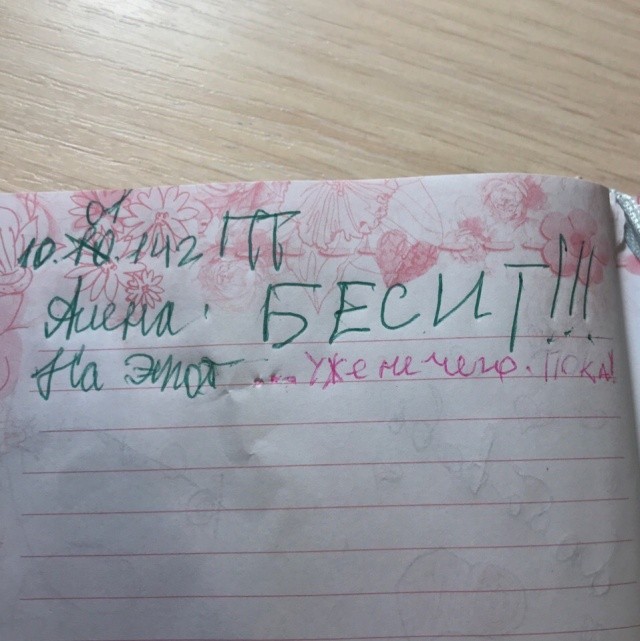 01
10.10.142 ПТ
Алена. БЕСИТ!!!
На этот .... Уже не чего. Пока!